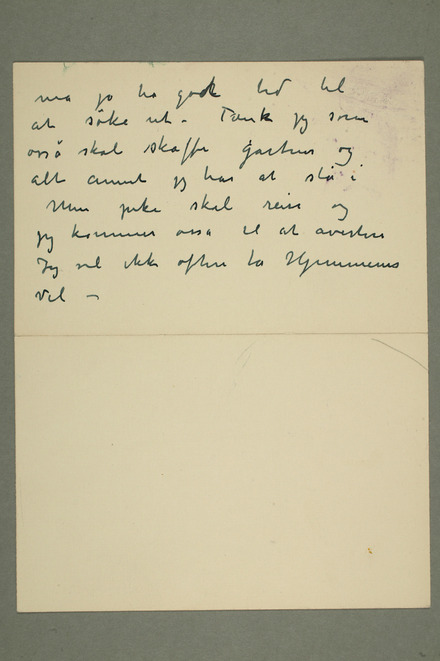 må jo ha godt tid til
at söke ut – Tænk jeg som
også skal skaffe gartner og
alt annet jeg har at stå i
Min pike skal reise og
jeg kommer også til at avertere
Jeg vil ikke oftere ta Hjemmenes
Vel –